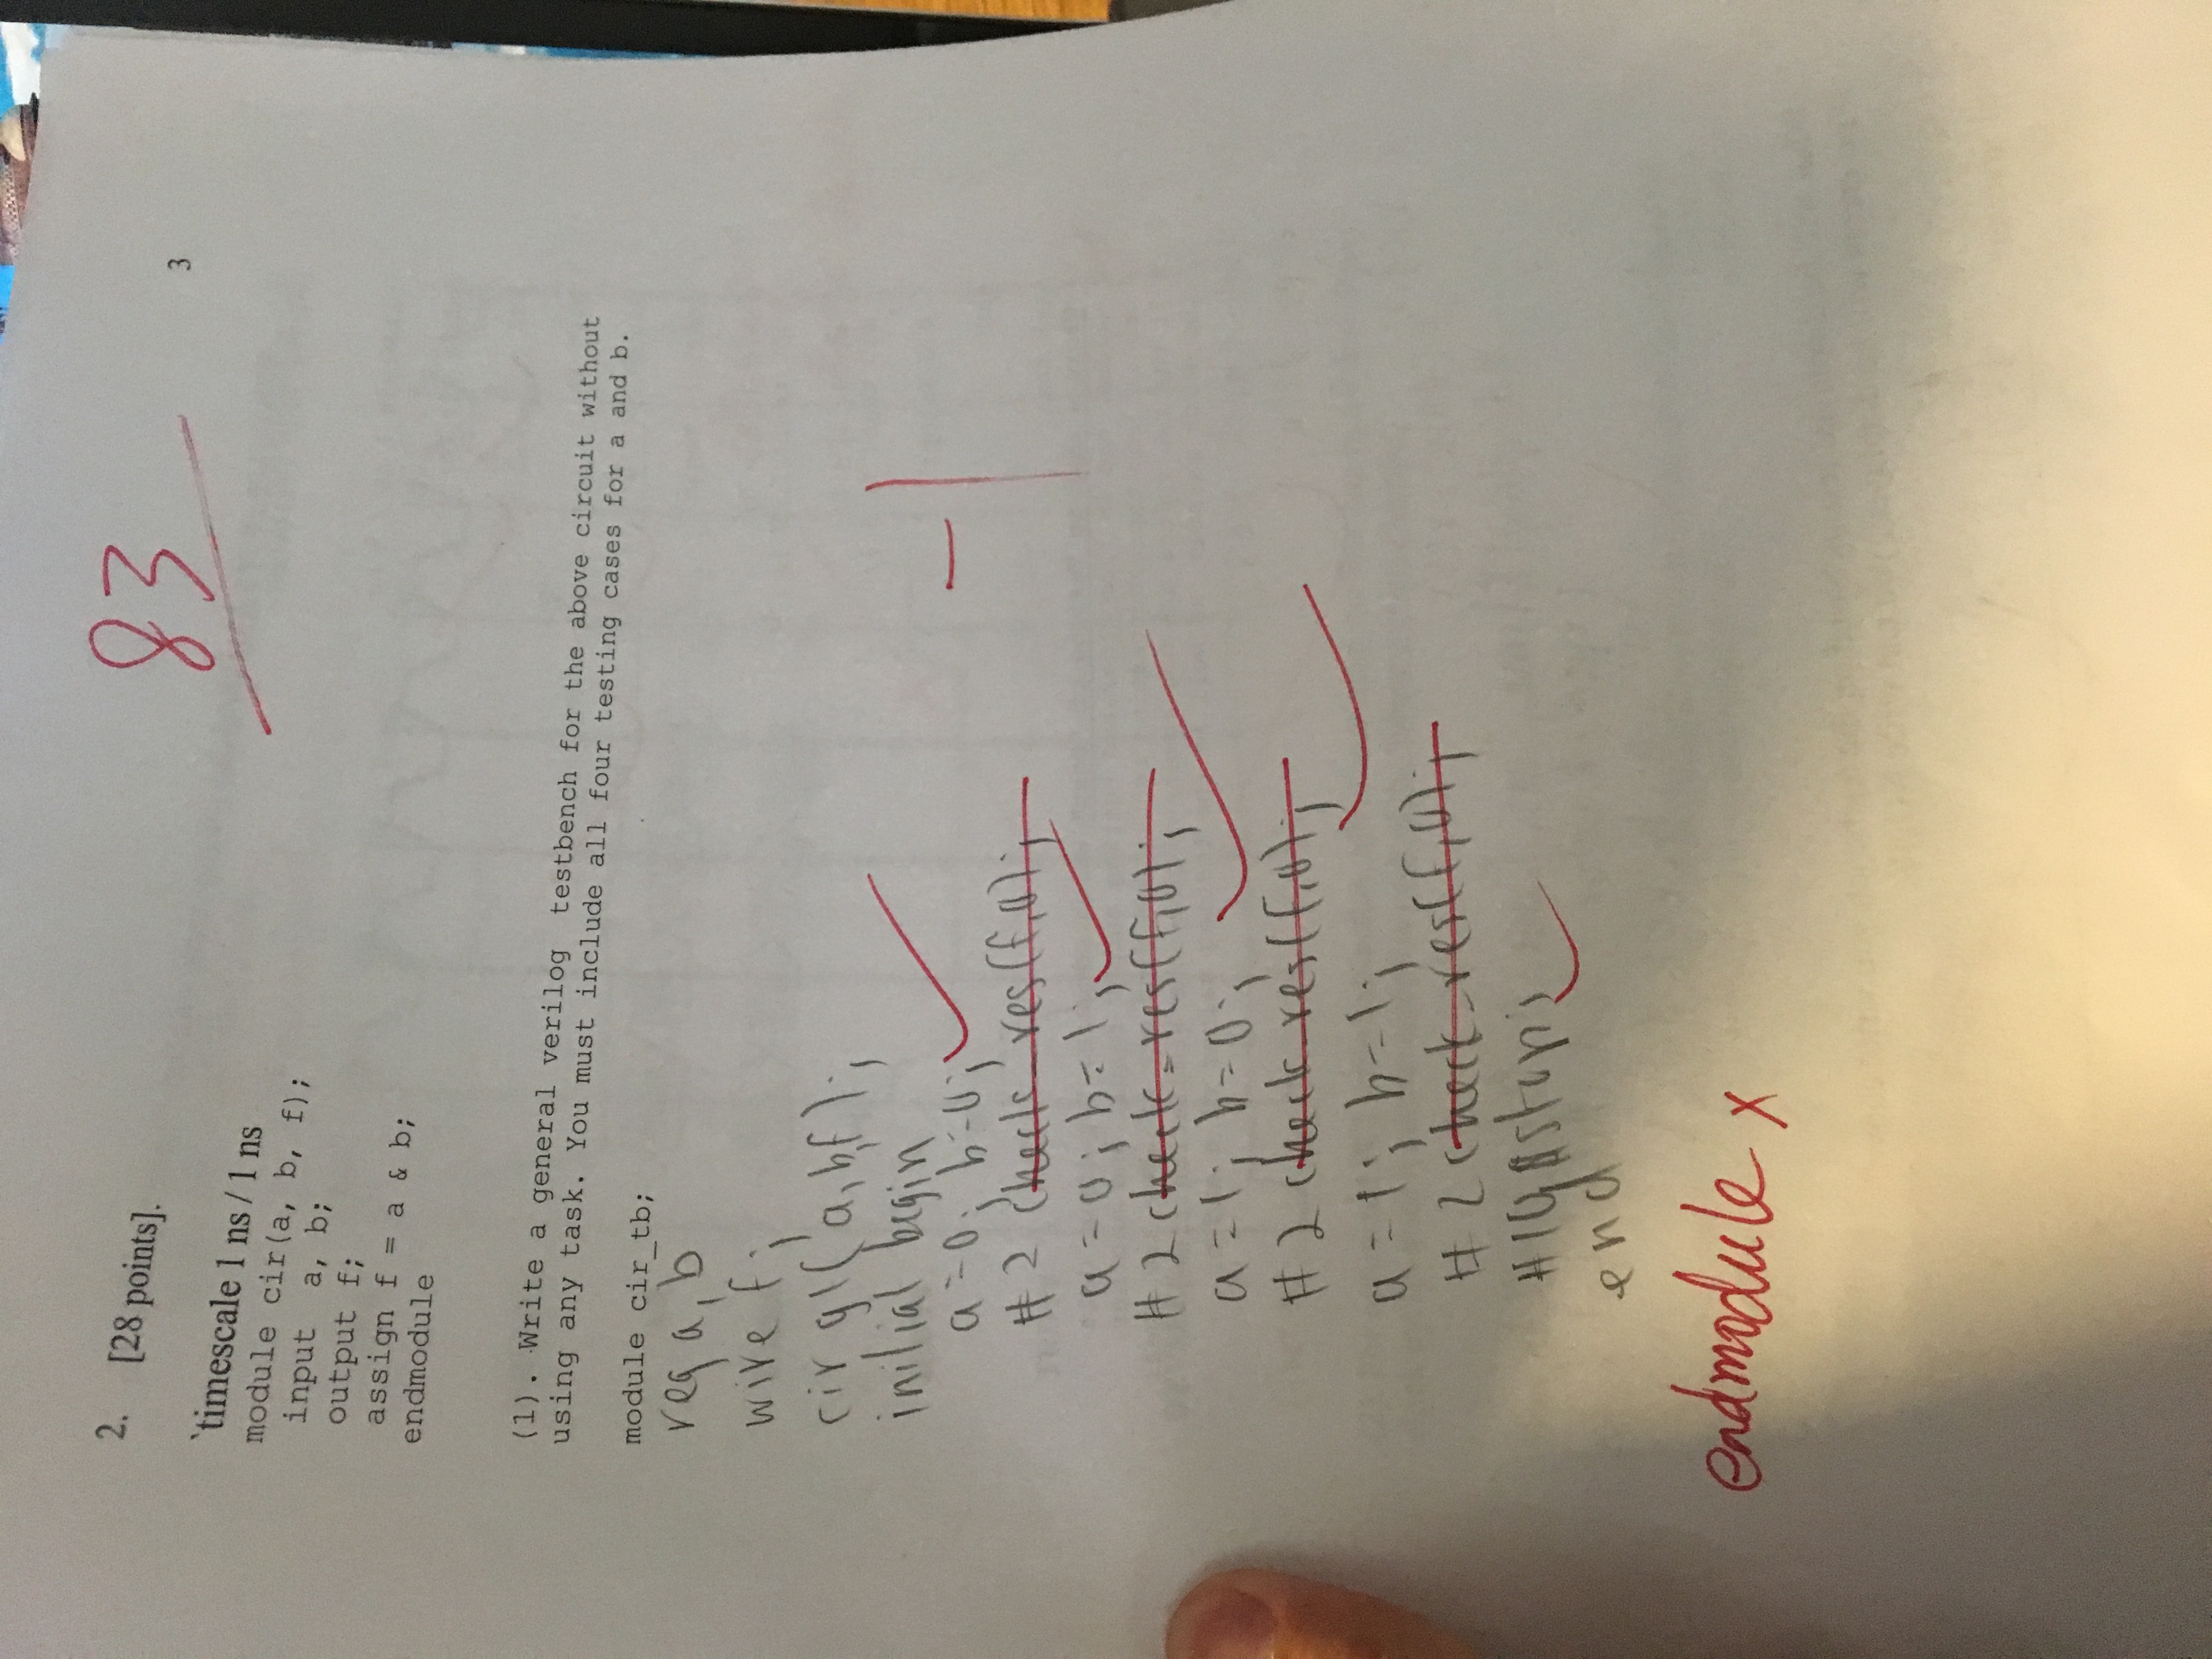 83
3
2. [28 points].
`timescale 1 ns / 1 ns
module cir(a, b, f);
input a, b;
output f;
assign f = a & b;
endmodule
(1). Write a general verilog testbench for the above circuit without
using any task. You must include all four testing cases for a and b.
module cir_tb;
reg a, b
wire f;
cir g1( a, b, f );
initial begin
a=0; b=0;
-1
#2 check_res(f,0);
a=0; b=1;
#2 check_res(f,0);
a=1; b=0;
#2 check_res(f,0);
a=1; b=1;
#2 check_res(f,0);
stop;
end
endmodule x